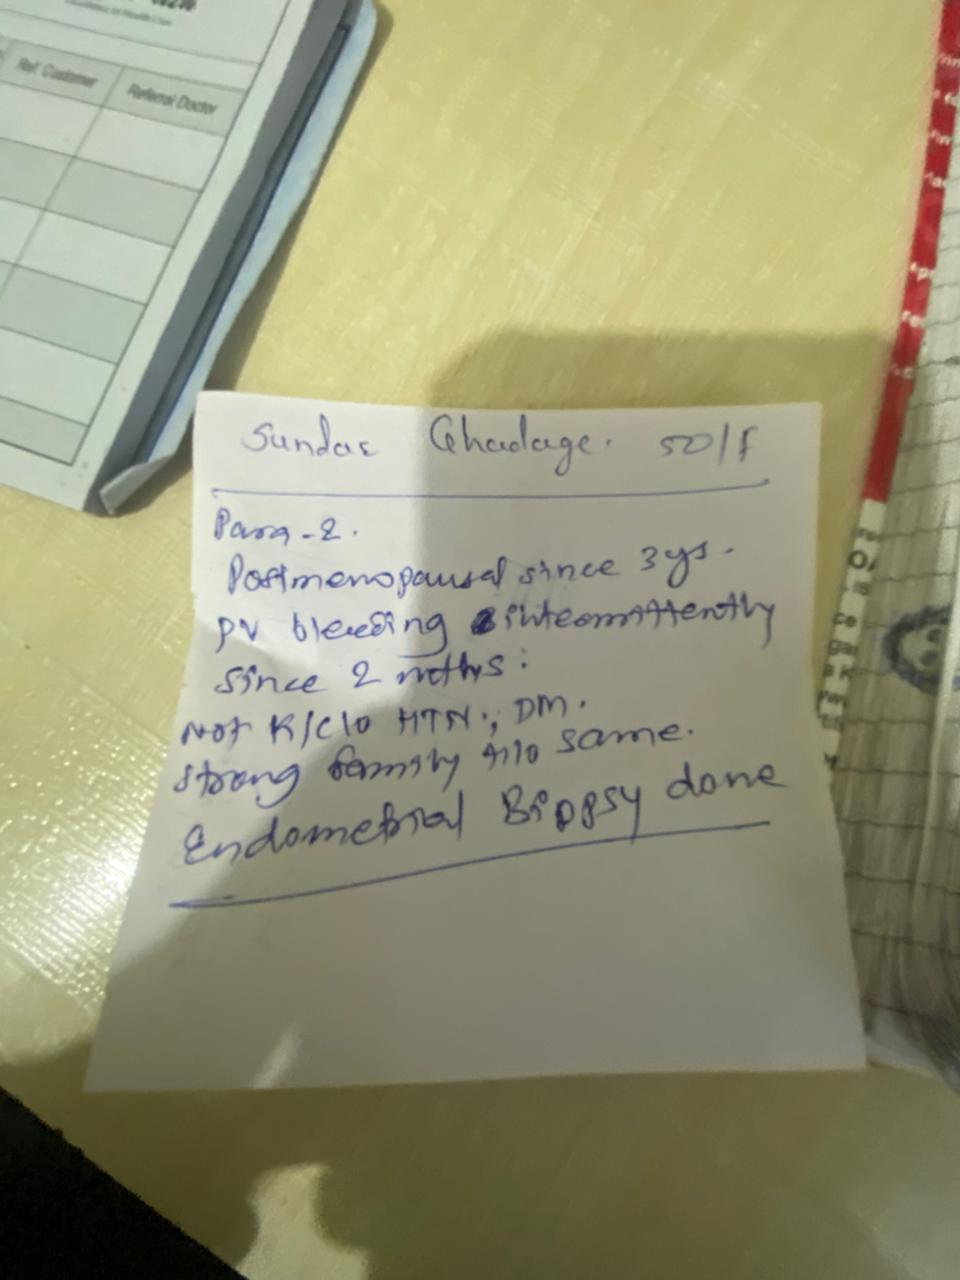 Ref. Customer
Referral Doctor
Sundar Ghadage. 50/F
Para-2.
Postmenopausal since 3ys.
PV bleeding intermittently
since 2 mths.
Not K/C/O HTN, DM.
strong family H/O same.
Endometrial Biopsy done